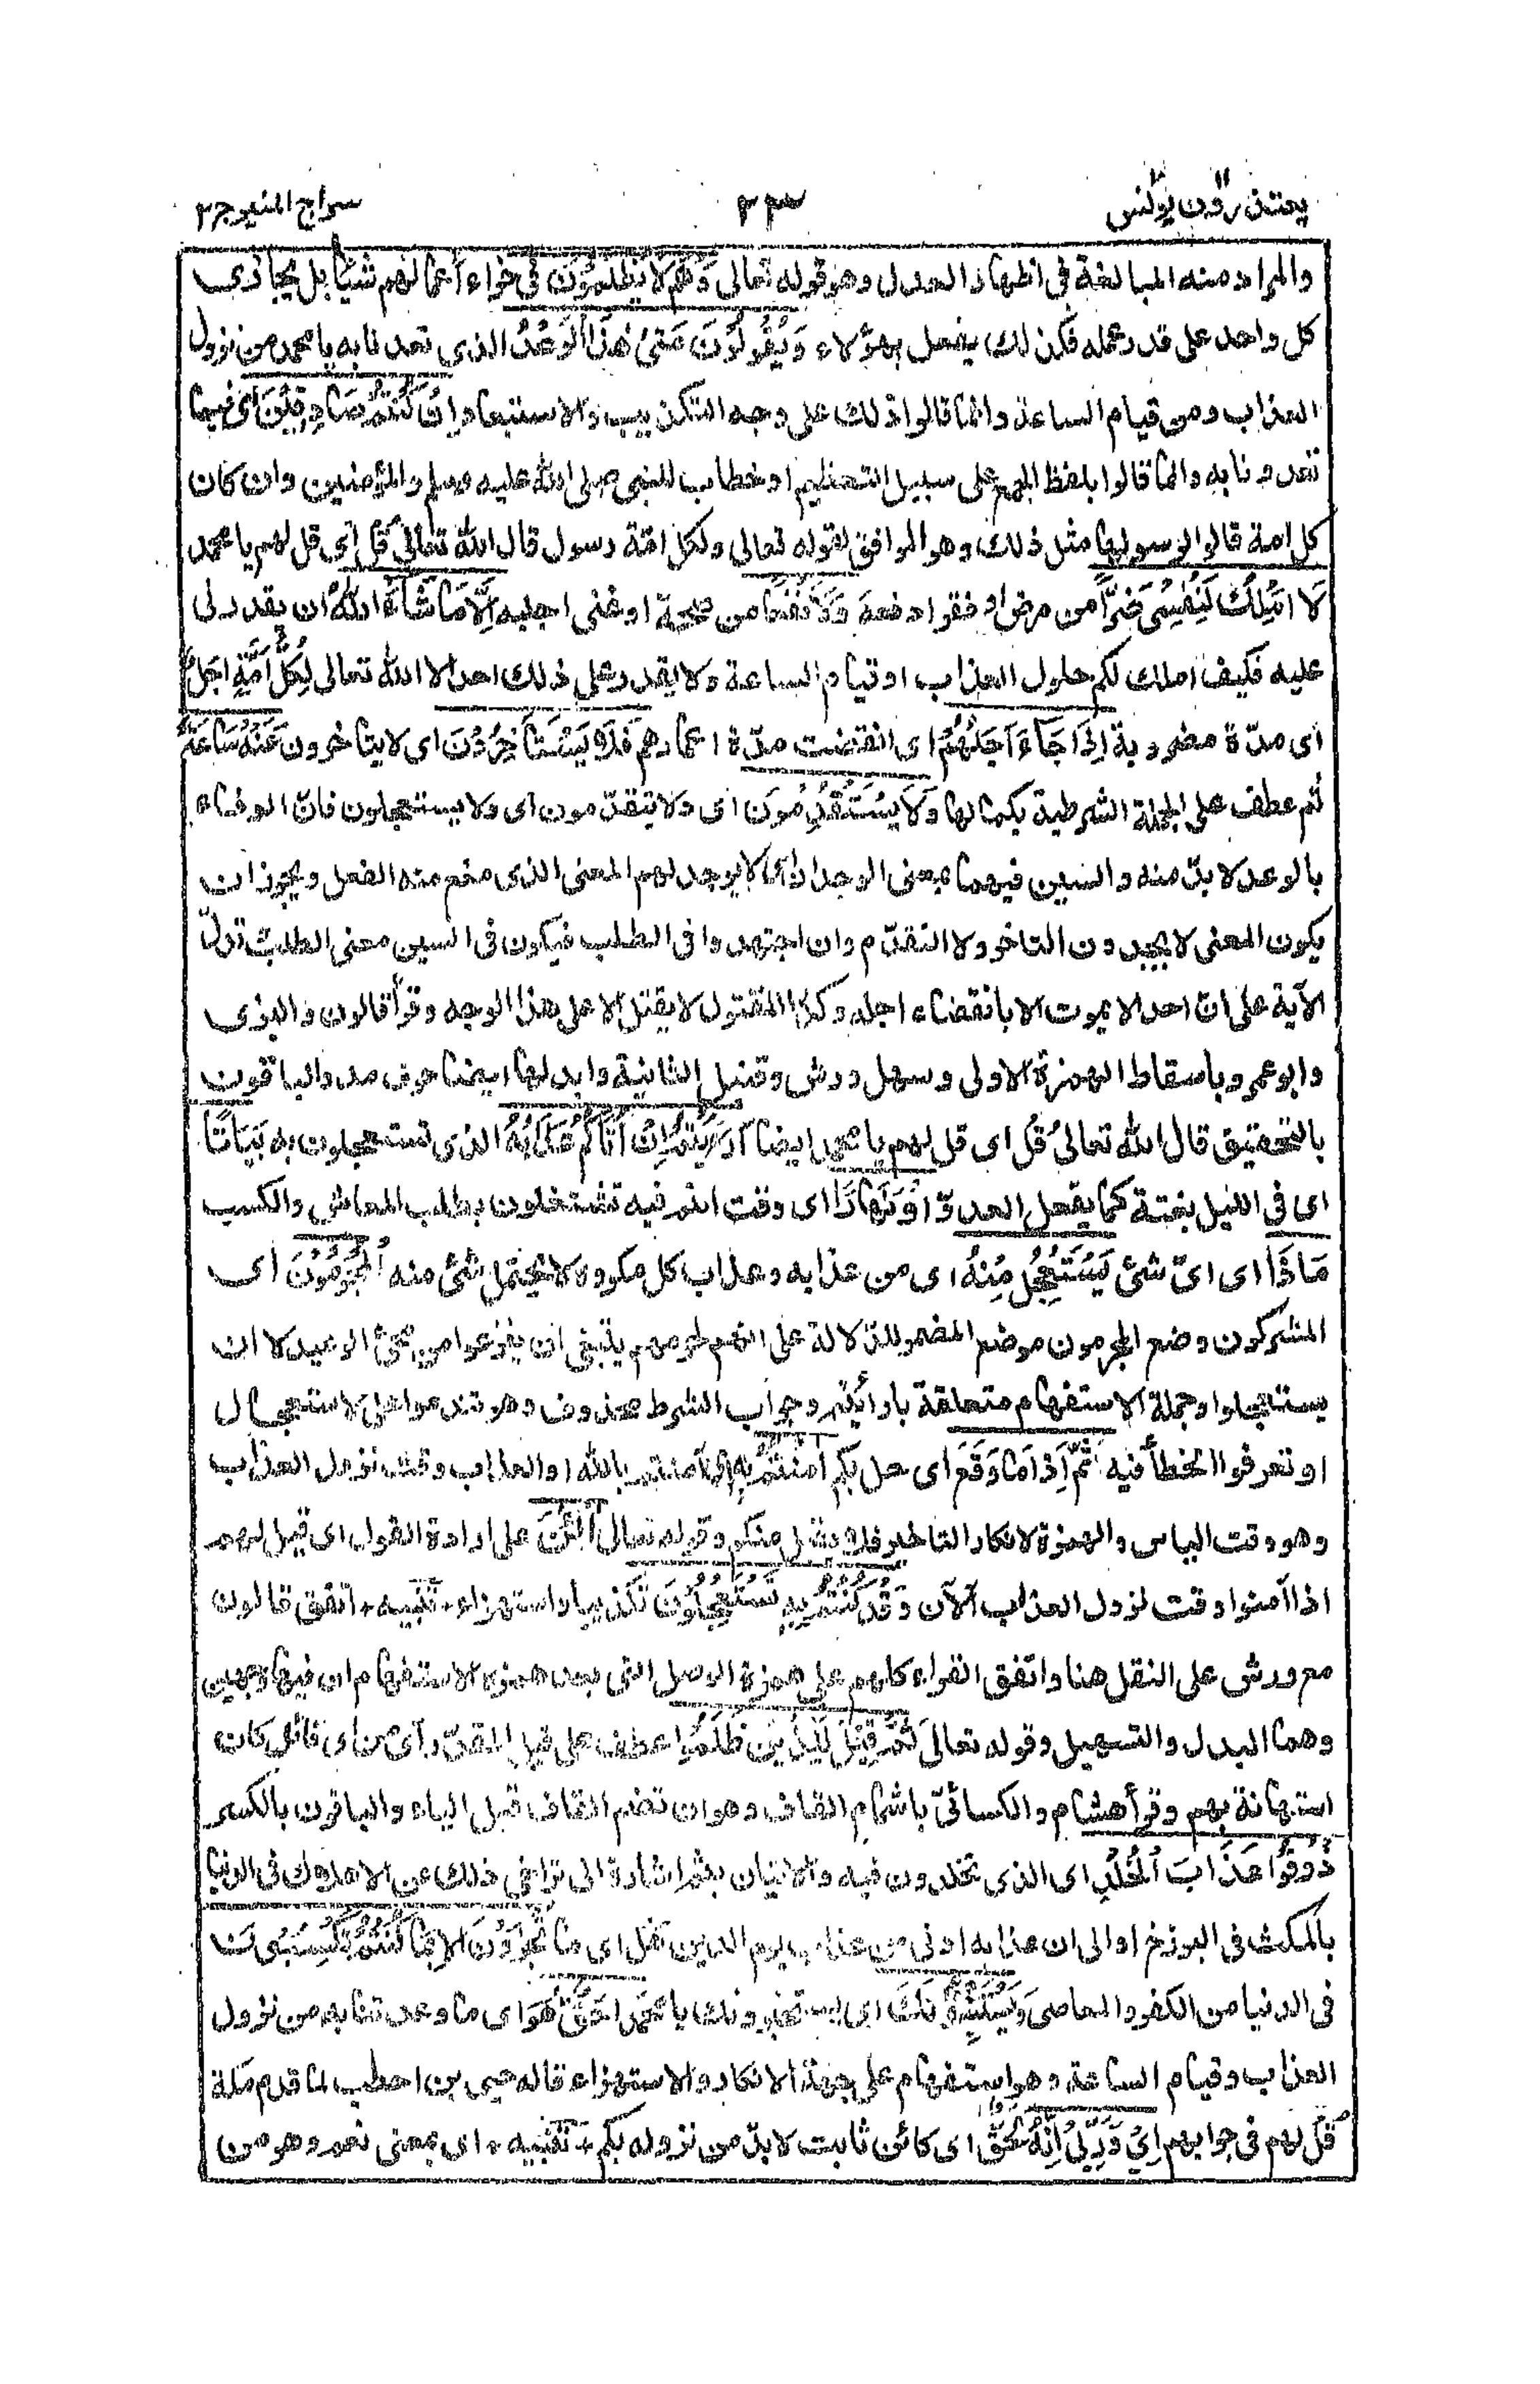 يعتذرون يونس ٣٣ سراج المنير ج٢
والمراد منه المبالغة فى اظهار العدل وهو قوله تعالى وَهُمْ لا يُظْلَمُوْنَ فى جزاء اعمالهم شيئا بل يجازى
كل واحد على قدر عمله فكذلك يفعل بهؤلاء وَيَقُولُوْنَ مَتىٰ هٰذَا الْوَعْدُ الذى تعدنا به يا محمد من نزول
العذاب ومن قيام الساعة وانما قالوا ذلك على وجه التكذيب والاستبعاد اِنْ كُنْتُمْ صَادِقِيْنَ اى فيما
تعدونا به وانما قالوا بلفظ الجمع على سبيل التعظيم او خطاب للنبى صلى الله عليه وسلم والمؤمنين وان كان
كل امة قالوا لرسولها مثل ذلك وهو الموافق لقوله تعالى ولكل امّة رسول قال الله تعالى قُلْ اى قل لهم يا محمد
لَا اَمْلِكُ لِنَفْسِىْ ضَرًّا من مرض او فقر ادفعه وَلَا نَفْعًا من صحة او غنى اجلبه اِلَّا مَا شَآءَ اللهُ ان يقدرلى
عليه فكيف املك لكم حلول العذاب او قيام الساعة ولا يقدر على ذلك احد الا الله تعالى لِكُلِّ اُمَّةٍ اَجَلٌ
اى مدّة مضروبة اِذَا جَآءَ اَجَلُهُمْ اى انقضت مدّة اعمارهم فَلَا يَسْتَأْخِرُوْنَ اى لا يتاخرون عَنْهُ سَاعَةً
ثم عطف على الجملة الشرطية بكمالها وَلَا يَسْتَقْدِمُوْنَ اى ولا يتقدّمون اى ولا يستعجلون فانّ الوفاء
بالوعد لا بدّ منه والسين فيهما بمعنى الوجدان اى لا يوجد لهم المعنى الذى منه الفعل ويجوز ان
يكون المعنى لا يجدون التاخر ولا التقدّم وان اجتهدوا فى الطلب فيكون فى السين معنى الطلب تدلّ
الآية على انّ احدا لا يموت الا بانقضاء اجله وكذا المقتول لا يقتل الا على هذا الوجه وقرأ قالون والبزى
وابو عمرو باسقاط الهمزة الاولى وسهل ورش وقنبل الثانية وابدلها ايضا حرف مد والباقون
بالتحقيق قال الله تعالى قُلْ اى قل لهم يا محمد ايضا اَرَءَيْتُمْ اِنْ اَتَاكُمْ عَذَابُهُ الذى تستعجلون به بَيَاتًا
اى فى الليل بغتة كما يفعل العدوّ اَوْ نَهَارًا اى وقت انتم فيه تشتغلون بطلب المعاش والكسب
مَاذَا اى اىّ شئ يَسْتَعْجِلُ مِنْهُ اى من عذابه وعذاب كل مكروه لا يحتمل شئ منه الْمُجْرِمُوْنَ اى
المشركون وضع المجرمون موضع المضمر للدلالة على انهم لجرمهم ينبغى ان يفزعوا من مجئ الوعيد لا ان
يستعجلوا وجملة الاستفهام متعلقة بارأيتم وجواب الشرط محذوف وهو تندموا على الاستعجال
او تعرفوا الخطأ فيه اَثُمَّ اِذَا مَا وَقَعَ اى حل بكم اٰمَنْتُمْ بِهٖ اى آمنتم بالله او العذاب وقت نزول العذاب
وهو وقت الياس والهمزة لانكار التاخير فلا يقبل منكم وقوله تعالى اٰلْئٰنَ على ارادة القول اى قيل لهم
اذا آمنوا وقت نزول العذاب الآن وَقَدْ كُنْتُمْ بِهٖ تَسْتَعْجِلُوْنَ تكذيبا واستهزاء ٭ تنبيه ٭ اتفق قالون
مع ورش على النقل هنا واتفق القراء كلهم على همزة الوصل التى بعد همزة الاستفهام ان فيها وجهين
وهما البدل والتسهيل وقوله تعالى ثُمَّ قِيْلَ لِلَّذِيْنَ ظَلَمُوْا عطف على قيل المقدّر اى من اى قائل كان
استهانة بهم وقرأ هشام والكسائىّ باشمام القاف وهو ان تضم القاف قبل الياء والباقون بالكسر
ذُوْقُوْا عَذَابَ الْخُلْدِ اى الذى تخلدون فيه والاتيان بثم اشارة الى تراخى ذلك عن الاهلاك فى الدنيا
بالمكث فى البرزخ او الى ان عذابه ادنى من عذاب يوم الدين هَلْ اى ما تُجْزَوْنَ اِلَّا بِمَا كُنْتُمْ تَكْسِبُوْنَ
فى الدنيا من الكفر والمعاصى وَيَسْتَنْبِئُوْنَكَ اى يستخبرونك يا محمد اَحَقٌّ هُوَ اى ما وعدتنا به من نزول
العذاب وقيام الساعة وهو استفهام على جهة الانكار والاستهزاء قاله حيى بن اخطب لما قدم مكة
قُلْ لهم فى جوابهم اِىْ وَرَبِّىْ اِنَّهُ لَحَقٌّ اى كائن ثابت لا بدّ من نزوله بكم ٭ تنبيه ٭ اى بمعنى نعم وهو من